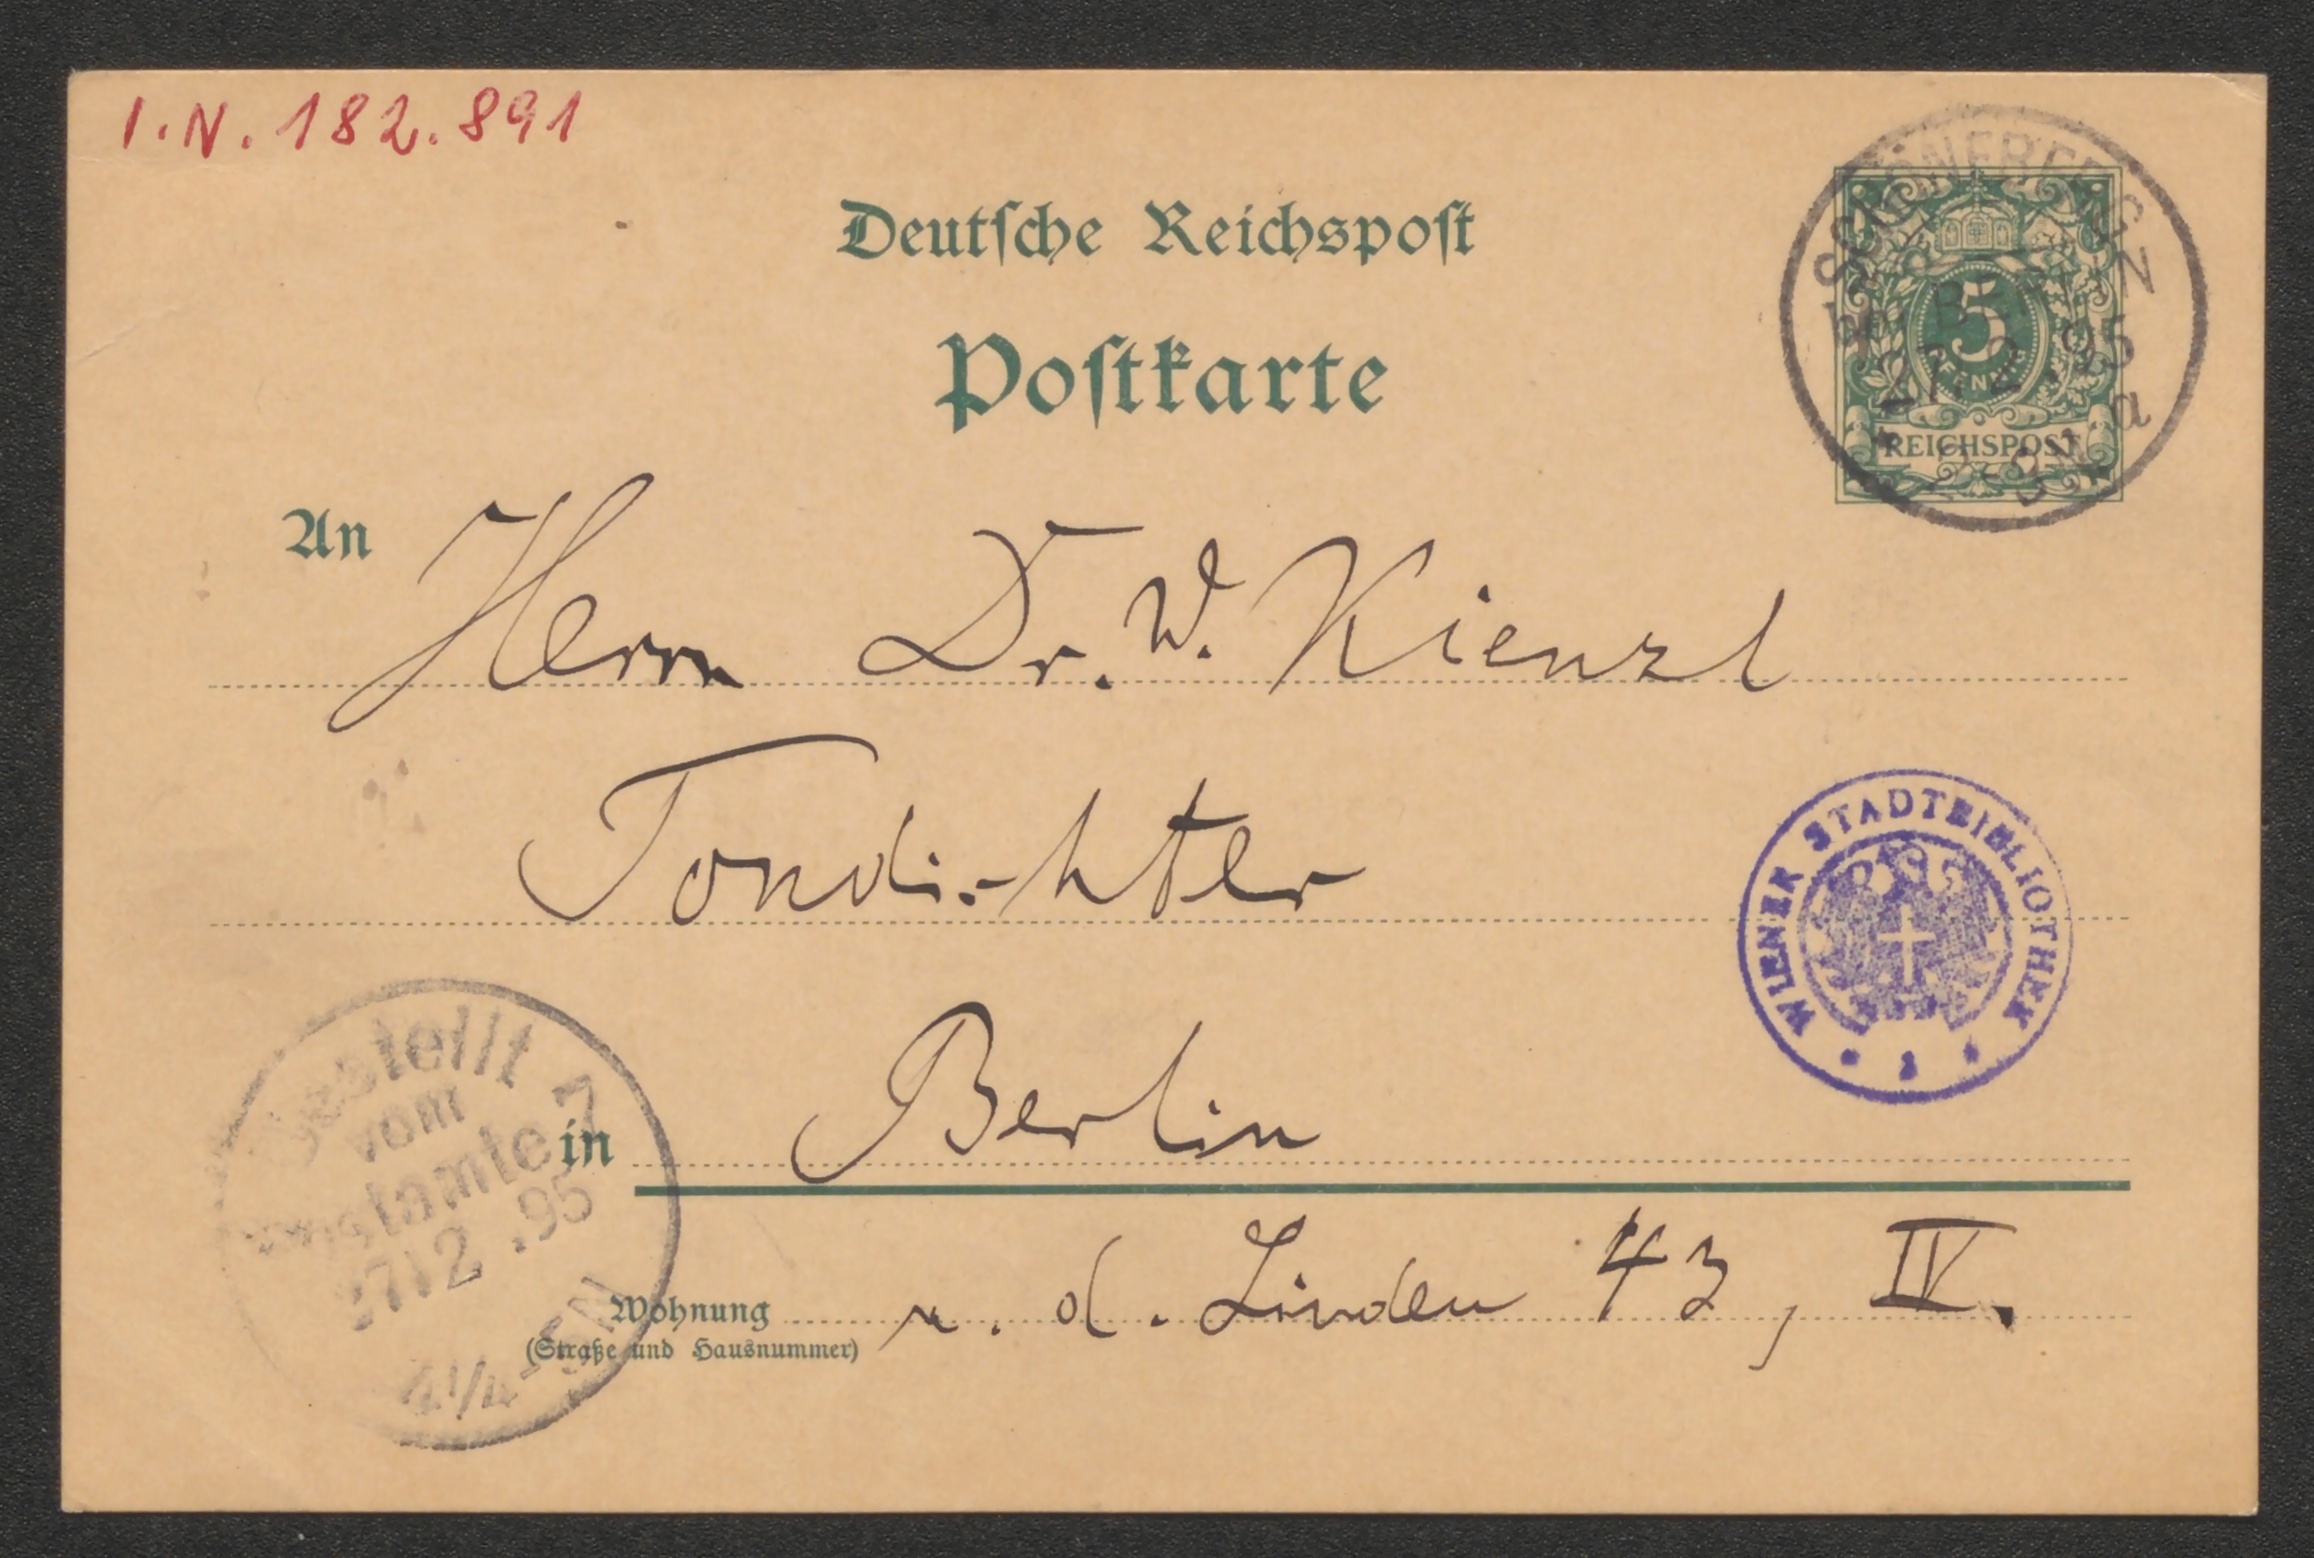 I.N. 182.891
Deutsche Reichspost
Postkarte
SCHÖNEBERG
BERLIN
27.2.95
a
2-3N
5
PFENNIG
REICHSPOST
An Herrn Dr. W. Kienzl
Tondichter
WIENER STADTBIBLIOTHEK
in Berlin
Bestellt
vom
Postamte 7
27/2.95
4¼-5N
Wohnung u. d. Linden 43, IV.
(Straße und Hausnummer)